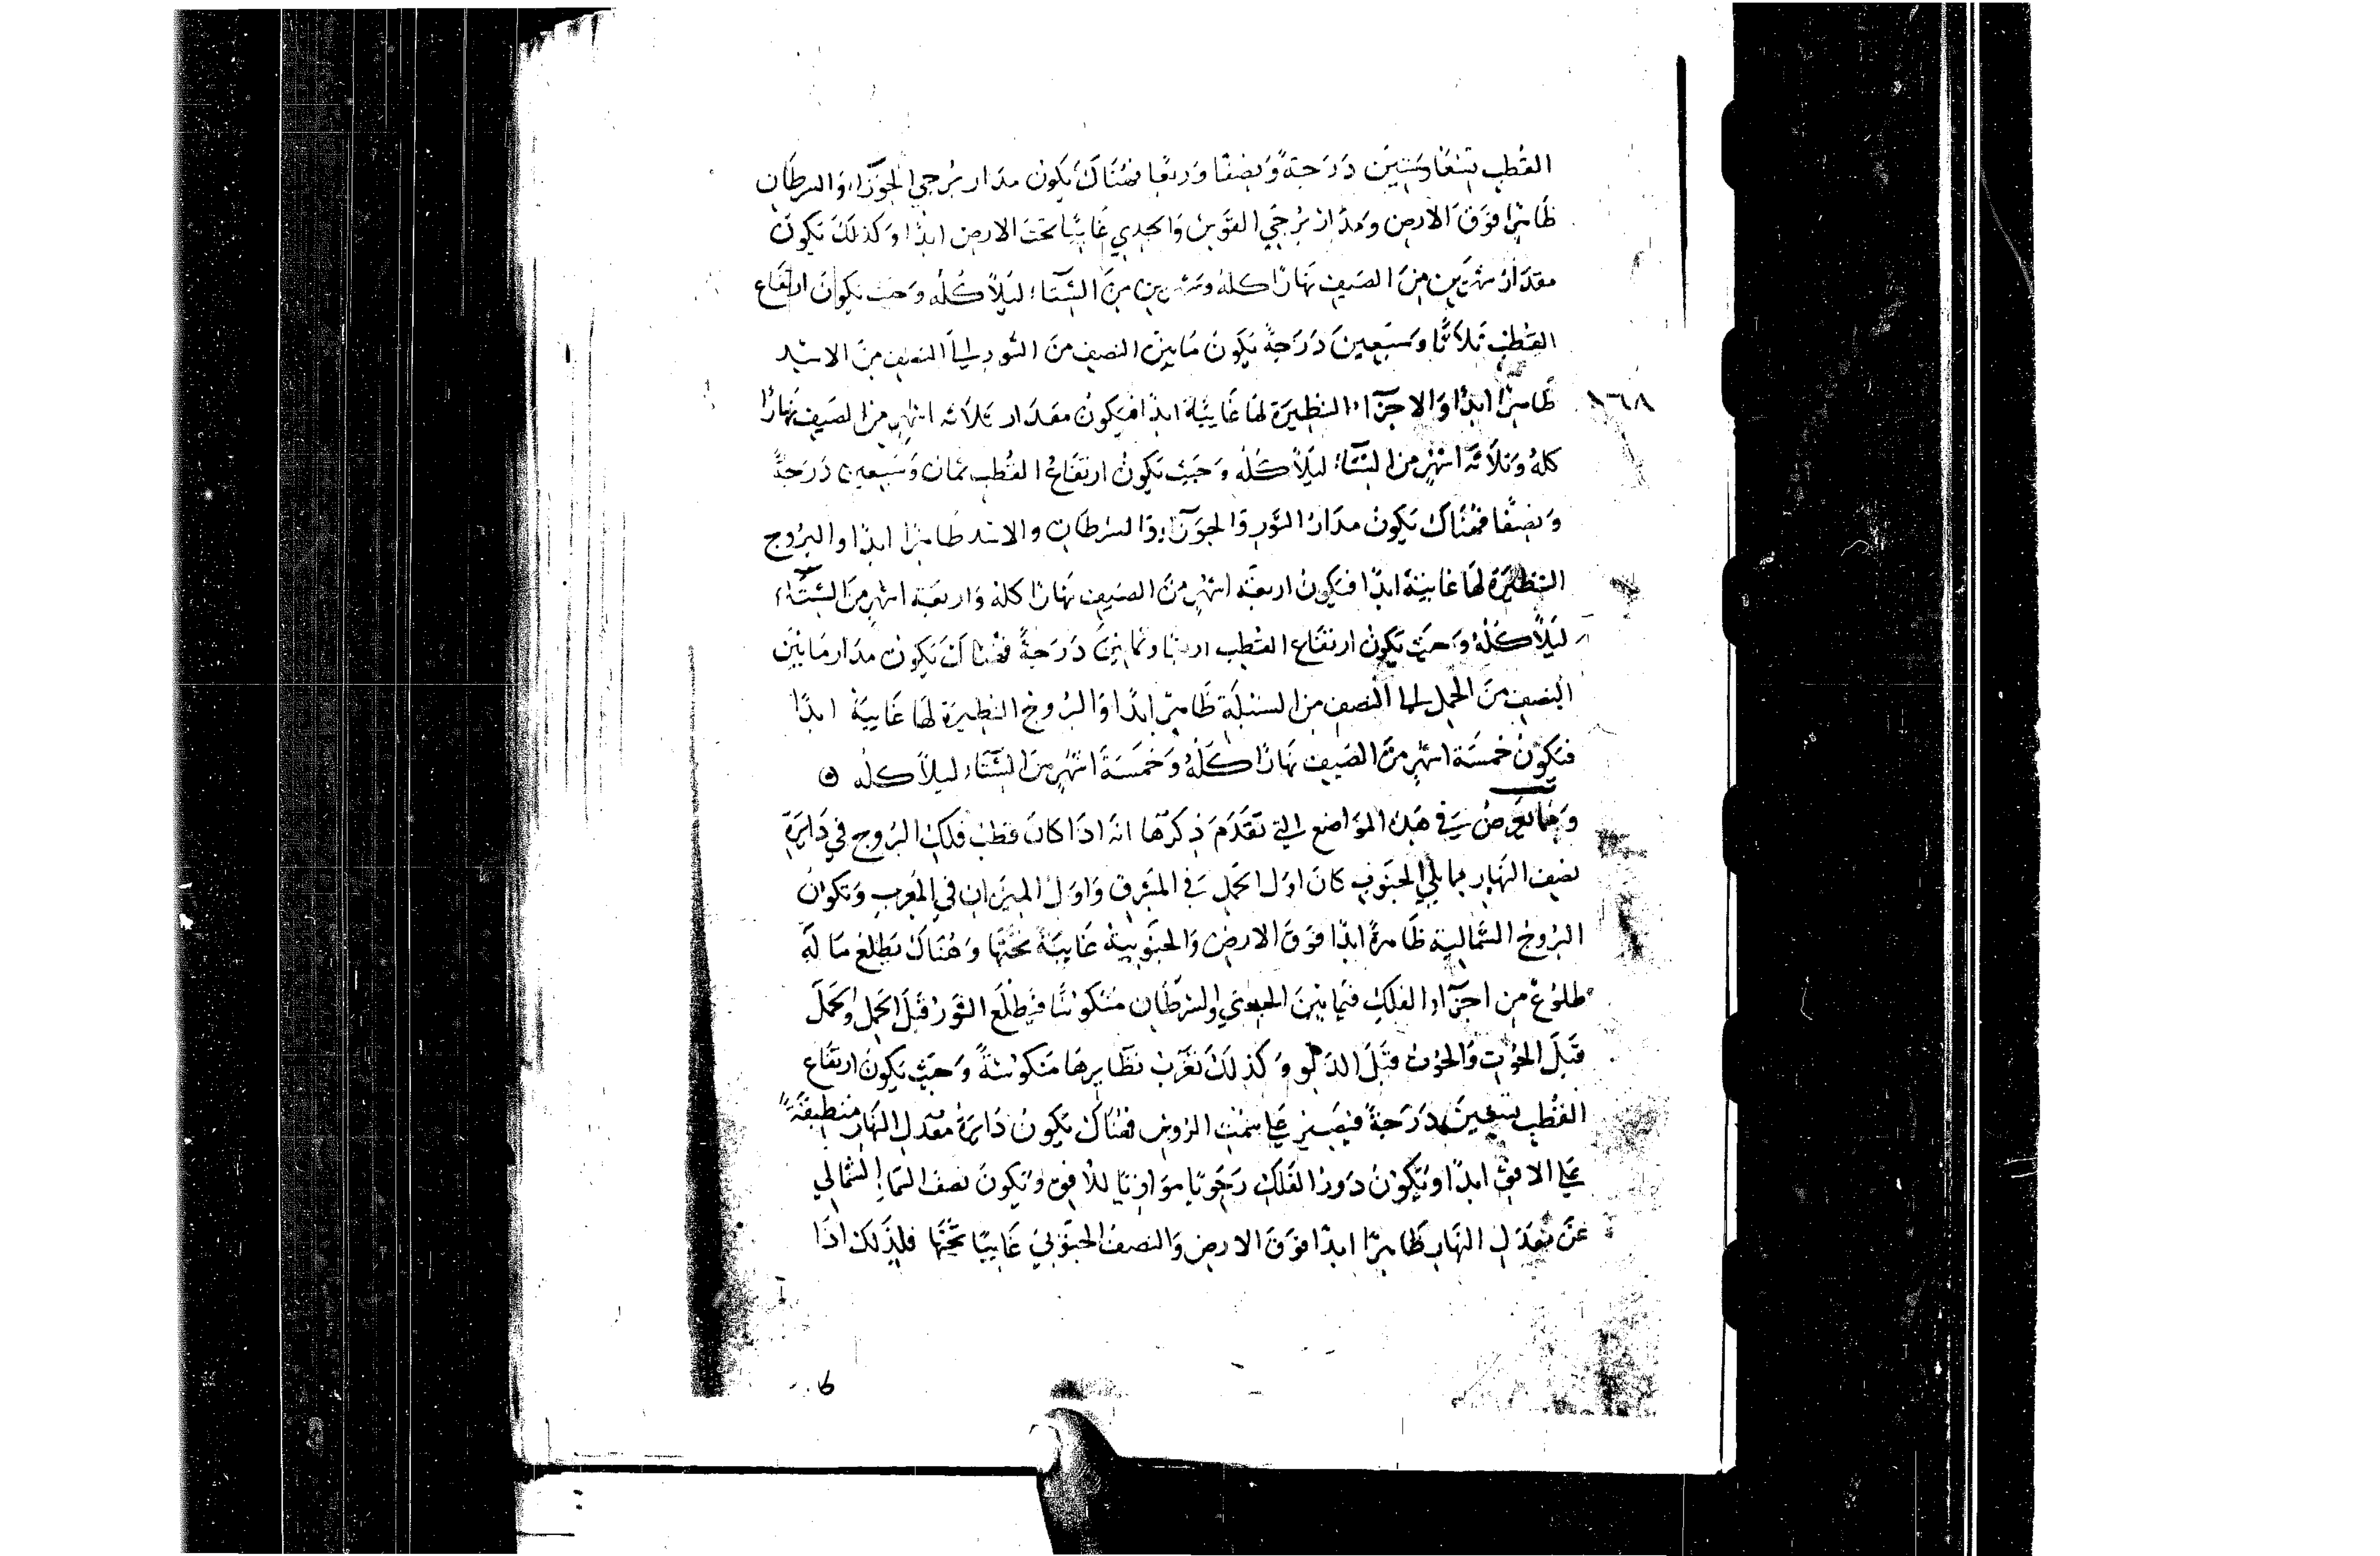 القُطب تِسْعًا وَسِتِّين دَرَجَةً وَنِصْفًا وَرُبعًا فهُنَاكَ يَكُون مدَار بُرجي الجَوزاء وَالسرطَان
ظَاهِرًا فَوقَ الارض وَمدَار بُرجَي القَوس وَالجدي غَايِبًا تحت الارض ابدًا وَكذلكَ يَكونُ
مقدَارُ شهرَين مِنَ الصَيف نهَارًا كلهُ وَشهرين مِنَ الشتَآء ليلاً كُلُه وَحيث يكون ارتفَاع
القطب ثَلاَثًا وَسَبعينَ دَرَجَةً يَكون مَا بين النصف منَ الثور الي النصف منَ الاسَد
ظَاهِرًا ابدًا وَالاجزَآء النظيرَة لهَا غَايبَة ابدًا فيَكون مقدَار ثلاَثه اشهر من الصَيف نهَارًا
١٦٨
كلهُ وَثلاَثَة اشهر من الشتَآء ليلاً كلهُ وَحَيث يَكونُ ارتفَاعُ القُطب ثمَان وَسَبعين دَرَجةً
وَنصفًا فهُنَاكَ يَكون مدَارُ الثور وَالجوزآء وَالسرطَان والاسد ظَاهرًا ابدًا والبرُوج
النظيرَة لهَا غايبَة ابدًا فيَكون اربعَة اشهر منَ الصَيف نهَارًا كله وَاربعَة اشهر منَ الشتَآء
ليَلاً كُلهُ وَحيَث يَكُون ارتفَاع القُطب اربعًا وثمَانينَ دَرَجَةً فهُنَاكَ يَكون مدَار مَا بَين
النصف منَ الحمل الي النصف من السنبلَة ظَاهِرًا ابدًا وَالبرُوج النظيرَة لهَا غَايبَة ابدًا
فيَكونُ خمسَة اشهر منَ الصَيف نهَارًا كُلهُ وَخمَسَة اشهُر منَ الشتَآء ليلاً كله ه
وَممَا يَعرضُ في هَذِه المَوَاضع التي تقدَمَ ذِكرهَا انهَ اذَا كانَ قطبُ فلك البرُوج في دَايرَة
نصف النهَار ممَا يلي الجنوب كانَ اوَل الحَمل في المشرق وَاوَل الميزان في المَغرب وَتكونُ
البرُوجُ الشمالية ظَاهرةً ابدًا فوَقَ الارض وَالجنوبيَة غَايبَة تحتهَا وَهُنَاكَ تطلع مَا لَه
طلوعٌ من اجزآء الفلك فيمَا بينَ الجدي والسرطَان مَنكوسًا فيَطلعَ الثَورُ قبَلَ الحمل والحَمل
قَبلَ الحُوت وَالحوُت قبَلَ الدَلو وَكذلَكَ تغرَب نظَايرهَا منكوسَةً وَحيَث يَكون ارتفَاع
القُطب تسعينَ دَرَجَةً فيَصير عَلي سَمت الروس فهُنَاكَ تكون دَايرَة مُعَدل النهَار مُنطبقَةً
عَلي الافق ابدًا وَيَكونُ دَور الفَلَك رَحَويًا موَازيًا للأفق وَيَكونَ نصف السَمَآء الشمَالي
عَن مُعَدَل النهَار ظَاهرًا ابدًا فوَقَ الارض وَالنصف الجنوبيَ غَايبًا تحتهَا فلذَلكَ اذَا